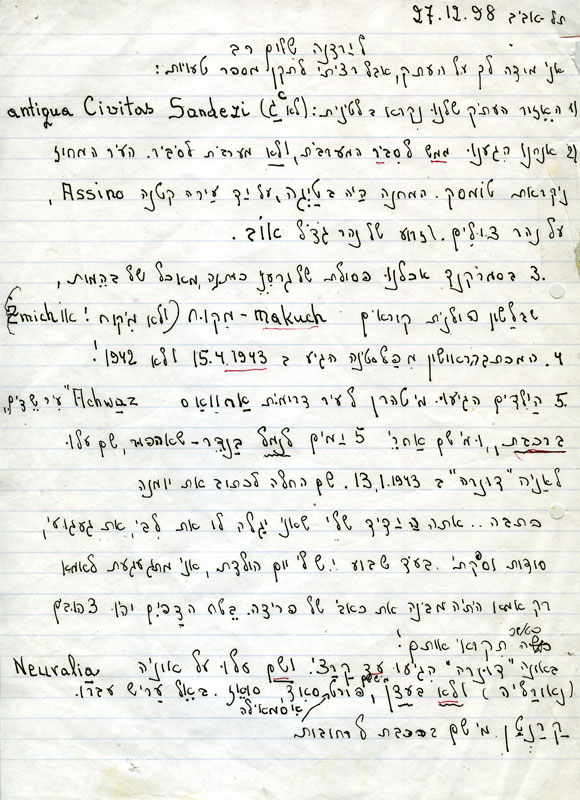 תל-אביב 27.12.98
לירדנה שלום רב
אני מודה לך על העתק, אבל רציתי לתקן מספר טעויות:
1) האזור העתיק שלנו נקרא בלטינית: (לא ג) antiqua Civitas Sandezi
2) אנחנו הגענו ממש לסיביר המערבית, ולא מערבית לסיביר. העיר המחוז
ניקראת טומסק. המחנה היה בטייגה, על יד עירה קטנה Assino,
על נהר צולים. זרוע של נהר גדול אוב.
3. בסמרקנד אכלנו פסולת של גרעני כותנה, מאכל של בהמות,
שבלשון פולנית קוראים makuch - מקוח (ולא מיקוח! או Zmich)
4. המכתב הראשון מפלסטינה הגיע ב 15.4.1943 ולא 1942!
5 הילדים הגיעו מטהרן לעיר דרומית אחוואס Achwaz "עיר שדים",
ברכבת, ומשם אחרי 5 ימים לנמל בנדר-שאהפור, שם עלו
לאניה "דונרה" ב 13.1.1943. שם החלה לכתוב את יומנה
כתבה.. אתה הידיד שלי שאני יגלה לו את לבי, את געגועי,
סודות וסקתי. בעוד שבוע יש לי יום הולדת, אני מתגעגעת לאמא
רק אמא היתה מבינה את כאבי של פרידה. בטח הדפים יהיו צהובים
כאשר תיקראי אותם!
באוניה "דונרה" הגיעו עד קרצ'י. ושם עלו על אוניה Neuralia
(נאורליה) ולא בעדן, משם פורט סאיד, סואץ. באל עריש עברו.
איסמאיליה
קרנטין. משם ברכבת לרחובות